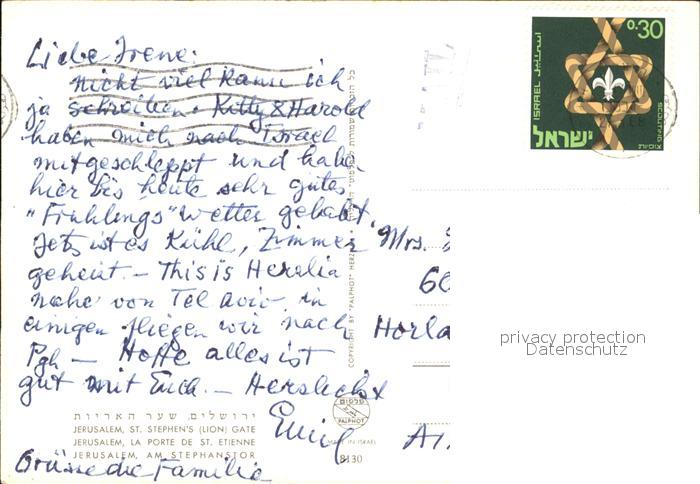 Liebe Irene:
nicht viel kann ich
ja schreiben. Kitty & Harold
haben mich nach Israel
mitgeschleppt und haben
hier bis heute sehr gutes
"Frühlings" wetter gehabt.
Jetzt ist es Kühl, Zimmer
geheizt. — This is Herzlia
nahe von Tel Aviv, in
einigen fliegen wir nach
Pgh — Hoffe alles ist
gut mit Euch. — Herzlichst
Emil
Grüsse die Familie
ירושלים, שער האריות
JERUSALEM, ST. STEPHEN'S (LION) GATE
JERUSALEM, LA PORTE DE ST. ETIENNE
JERUSALEM, AM STEPHANSTOR
COPYRIGHT BY "PALPHOT" HERZ
פלפוט
PALPHOT
MADE IN ISRAEL
8130
0.30
ISRAEL
اسرائيل
ישראל
SCOUTING
צופיות
Mrs.
60
Horla
privacy protection
Datenschutz